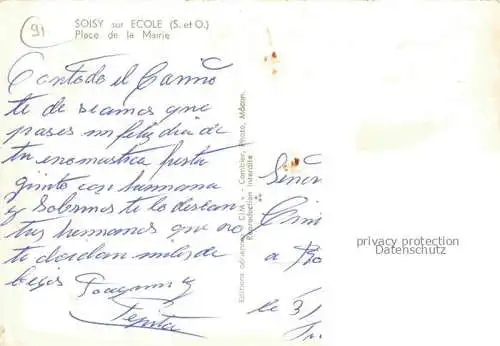 91
SOISY sur ECOLE (S. et O.)
Place de la Mairie
Con todo el Cariño
te deseamos que
pases un feliz dia de
tu enomastica fiesta
ginto con tu mama
y sobrinos te lo desean
tus hermanos que no
te olvidan miles de
besos Joaquin y
Pepita
Editions aériennes CIM - Combier, Photo, Mâcon.
Reproduction interdite
Señor
a
le 31
privacy protection
Datenschutz